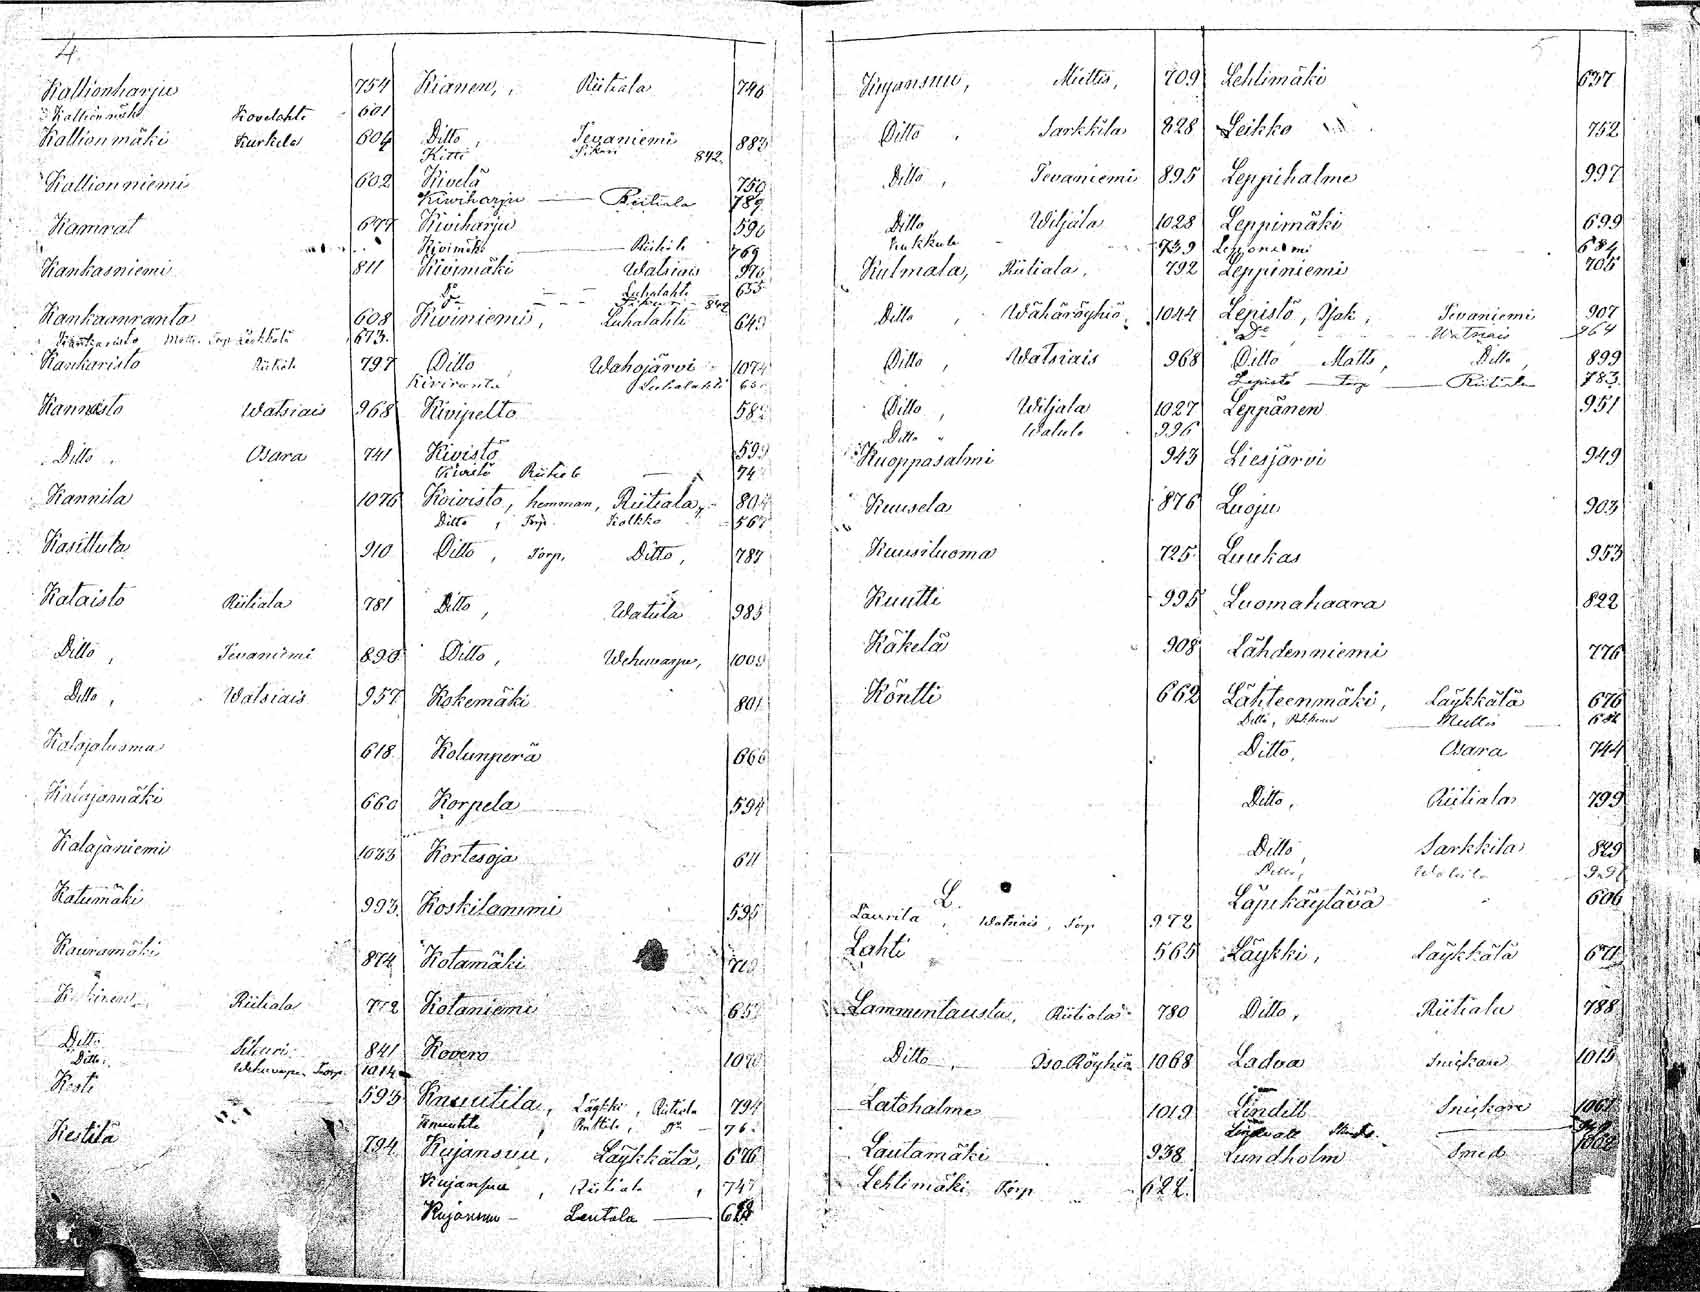 4.
Kallionharju 754
Kallionmäki Kovelahti 601
Kallionmäki Kurkela 604
Kallionniemi 602
Kamrat 677
Kankasniemi 811
Kankaanranta 608
Kankaristo Torp Läykkälä 673.
Kankaristo Riitiala 797
Kannisto Watsiais 968
Ditto, Osara 741
Kannila 1076
Kasittula 910
Kataisto Riitiala 781
Ditto, Tevaniemi 890
Ditto, Watsiais 957
Katajaluoma 618
Katajamäki 660
Katajaniemi 1033
Katumäki 993
Kauramäki 874
Riitiala 772
Ditto Sikuri 841
Ditto. Torp. 1014
Kesti 593
Kestilä 794
Kianen, Riitiala 746
Ditto, Tevaniemi 883
Kitti Sikuri 842.
Kivelä 750
Kiviharju Riitiala 789
Kiviharju 590
Kivimäki Riitiala 769
Kivimäki Watsiais 970
Do Luhalahti 655
842
Kiviniemi, Luhalahti 649
Ditto, Wahojärvi 1074
Kiviranta Luhalahti
Kivipelto 582
Kivistö 599
Kivistö Riitiala
Koivisto, hemman, Riitiala, 804
Ditto, Torp. Kolkko 567
Ditto, Torp, Ditto, 787
Ditto, Watula 985
Ditto, Wehuvarpe, 1009
Kokemäki 801
Kolunperä 666
Korpela 594
Kortesoja 611
Koskilammi 595
Kotamäki
Kotaniemi
Kovero
Knuutila, Läykki, Riitiala 794
Knuutila, Do
Kujansuu, Läykkälä, 676
Kujansuu, Riitiala, 747
Kujansuu - Lautala
5
Kujansuu, Miettis, 709
Ditto, Sarkkila 828
Ditto, Tevaniemi 895
Ditto Wiljala 1028
Kukkula 739
Kulmala, Riitiala, 792
Ditto, Wähäröyhiö 1044
Ditto, Watsiais 968
Ditto, Wiljala 1027
Ditto Watula 996
Kuoppasalmi 943
Kuusela 876
Kuusiluoma 725
Kuutti 995
Käkelä 908
Köntti 662
L.
Laurila, Watsiais, Torp 972
Lahti 565
Lammentausta, Riitiala 780
Ditto, Iso Röyhiö 1068
Latohalme 1019
Lautamäki 938
Lehtimäki Torp 622.
Lehtimäki 637
Leikko 752
Leppihalme 997
Leppimäki 699
Leppiniemi 684
Leppiniemi 705
Lepistö, Ojak, Tevaniemi 907
Do Watsiais 964
Ditto Matts, Ditto, 899
Lepistö Torp Riitiala 783.
Leppänen 951
Liesjärvi 949
Luoju 903
Luukas 953
Luomahaara 822
Lähdenniemi 776
Lähteenmäki, Läykkälä 676
Ditto, Miettis
Ditto, Osara 744
Ditto, Riitiala 799
Ditto, Sarkkila 829
Ditto,
Läpikäytävä 606
Läykki, Läykkälä 671
Ditto, Riitiala 788
Ladva Snickare 1015
Lindell Snickare 1061
Lundholm Smed